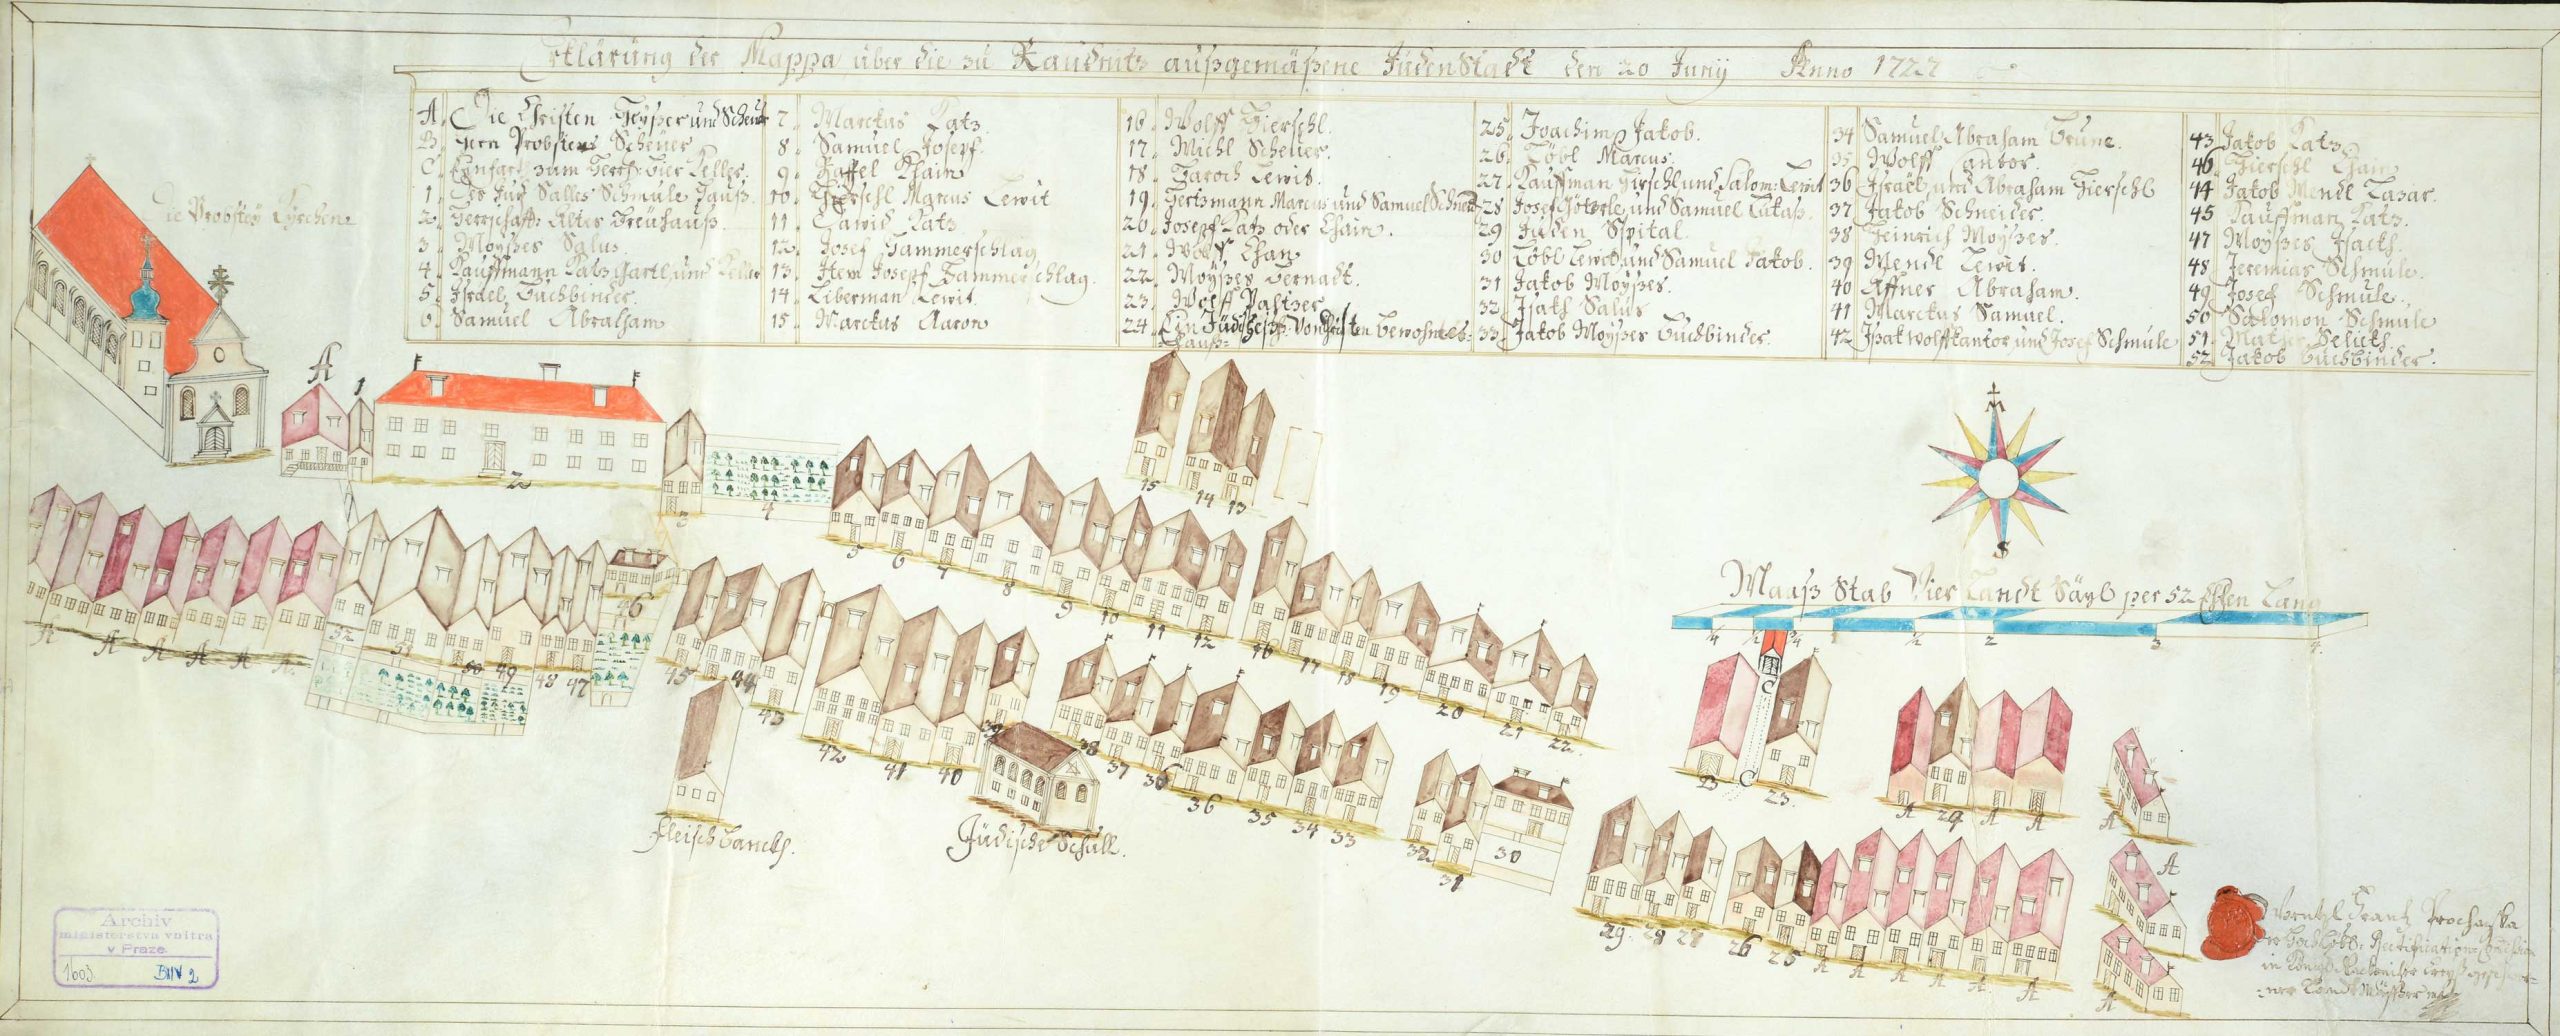 Erklärung der Mappa über die zu Raudnitz außgemäßene Juden Stadt den 20 Juny Anno 1727
A. Die Christen Heyßer und Scheuer
B. Hern Probstens Scheüer
C. Einfart zum Herrsch: Bier Keller.
1. Des Jud Salles Schmule Hauß.
2. Herrschafft: Altes Breühauß.
3. Moyßes Salus.
4. Kauffmann Katz Gartl, und Keller
5. Israel Buchbinder.
6. Samuel Abraham
7. Marckus Katz
8. Samuel Josepf.
9. Raffel Chaim
10. Hierschl Marcus Lewit
11. Dawid Katz
12. Josef Hammerschlag
13. Item Josepf Hammerschlag.
14. Liberman Lewit.
15. Marckus Aaron
16. Wolff Hierschl.
17. Michl Scheuer.
18. Baroch Lewit.
19. Hertzmann Marcus und Samuel Schmul
20. Josepf Katz oder Chaim.
21. Wolff Chan
22. Moyßes Bernact.
23. Wolff
24. Ein Jüdisches von Christen bewohntes
Hauß
25. Joachimb Jakob.
26. Löbl Marcus.
27. Kauffman Hirschl und Salom: Lewit
28. Josef und Samuel
29. Juden Spital.
30. Löbl Lewit, und Samuel Jakob.
31. Jakob Moyßes.
32. Isakh Salus
33. Jakob Moyßes Buchbinder.
34 Samuel Abraham
35 Wolff Cantor.
36 Israel und Abraham Hierschl
37. Jakob Schneider.
38 Heinrich Moyßes.
39 Mendl Lewit.
40 Affner Abraham.
41 Marckus Samuel.
42 Isak Wolff kantor, und Josef Schmule
43 Jakob Katz
46 Hierschl Chaim
44 Jakob Mendl Lazar.
45 Kauffman Katz.
47 Moyßes Isackh.
48 Jeremias Schmule.
49 Josef Schmule.
50 Salomon Schmule
51.
52 Jakob Buchbinder.
Die Probstey Kyrchen
A 1
2 3 4
5 6 7 8 9 10 11 12
15 14 13
16 17 18 19 20 21 22.
N
S
Maaß Stab Vier Landt Säyl per 52 Ehlen Lang
1/4 1/2 3/4 1 1/2 2 3 4.
A A A A A A.
52 51 50 49 48 47
46
45 44 43 42 41 40 39 38 37 36 36 35 34 33
32 31 30
C
B C 23.
A 24 A A
A
A
A
29. 28 27 26 25 A A A A A A
Fleisch Banckh.
Jüdische Schull.
Wentzl Frantz Prochaska
Archiv
ministerstva vnitra
v Praze.
1603. BIIV 2